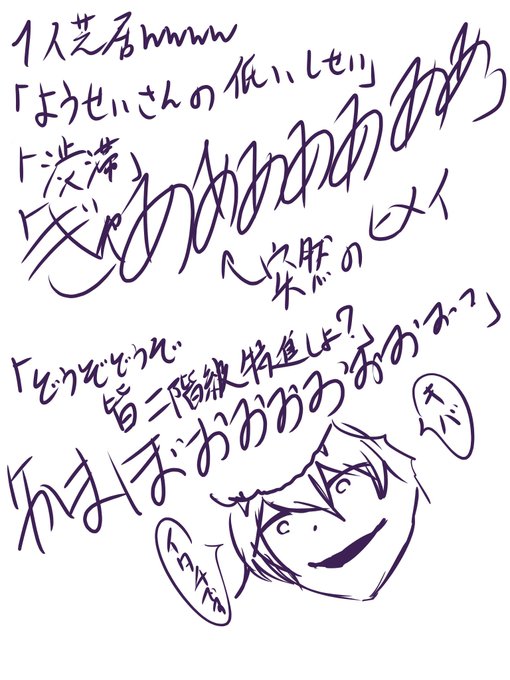 1人芝居wwww
「ようせいさんの低いしせい」
「渋滞」
「ぎゃあああああああぁっ
↖突然のヒメイ
「ぞうぞぞうぞ
皆二階級特進しよ?」
「かまぼおおおおおおお?」
キバ